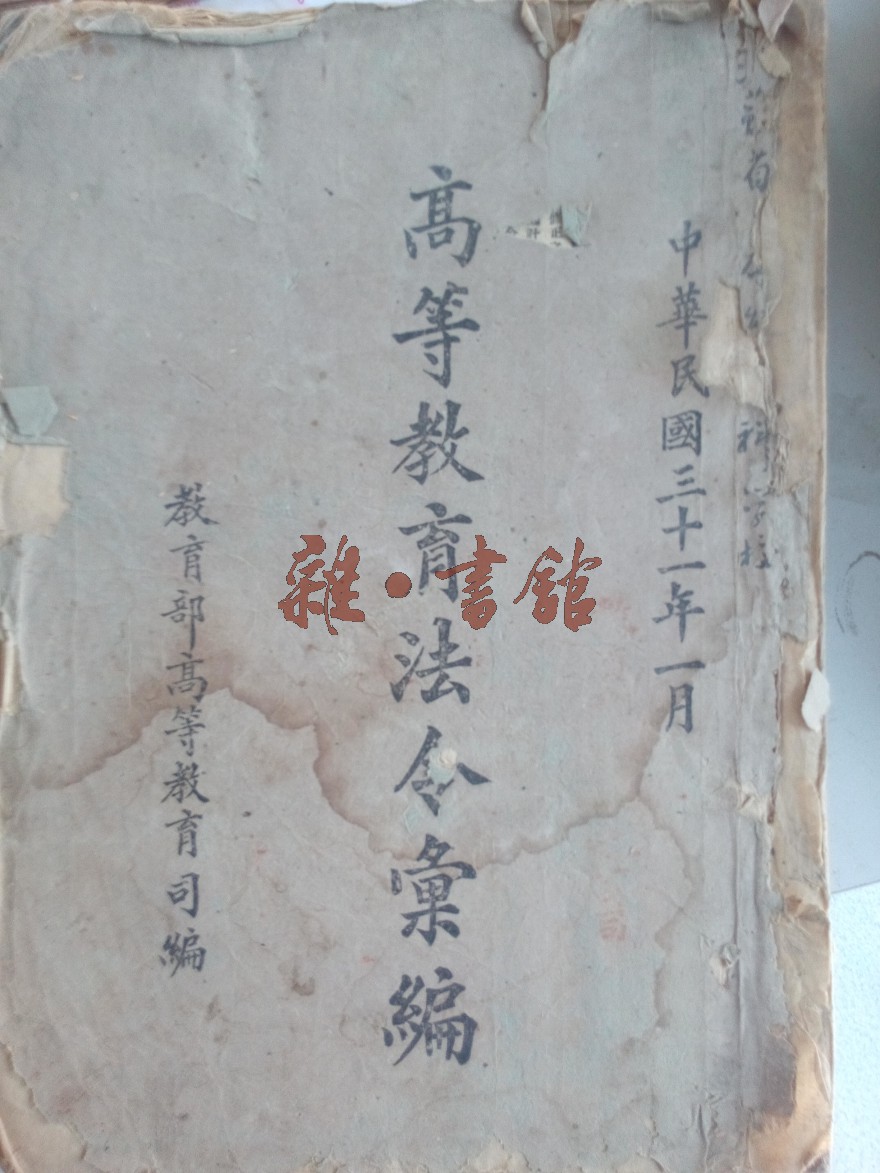 中華民國三十一年一月
高等教育法令彙編
教育部高等教育司編
雜·書館